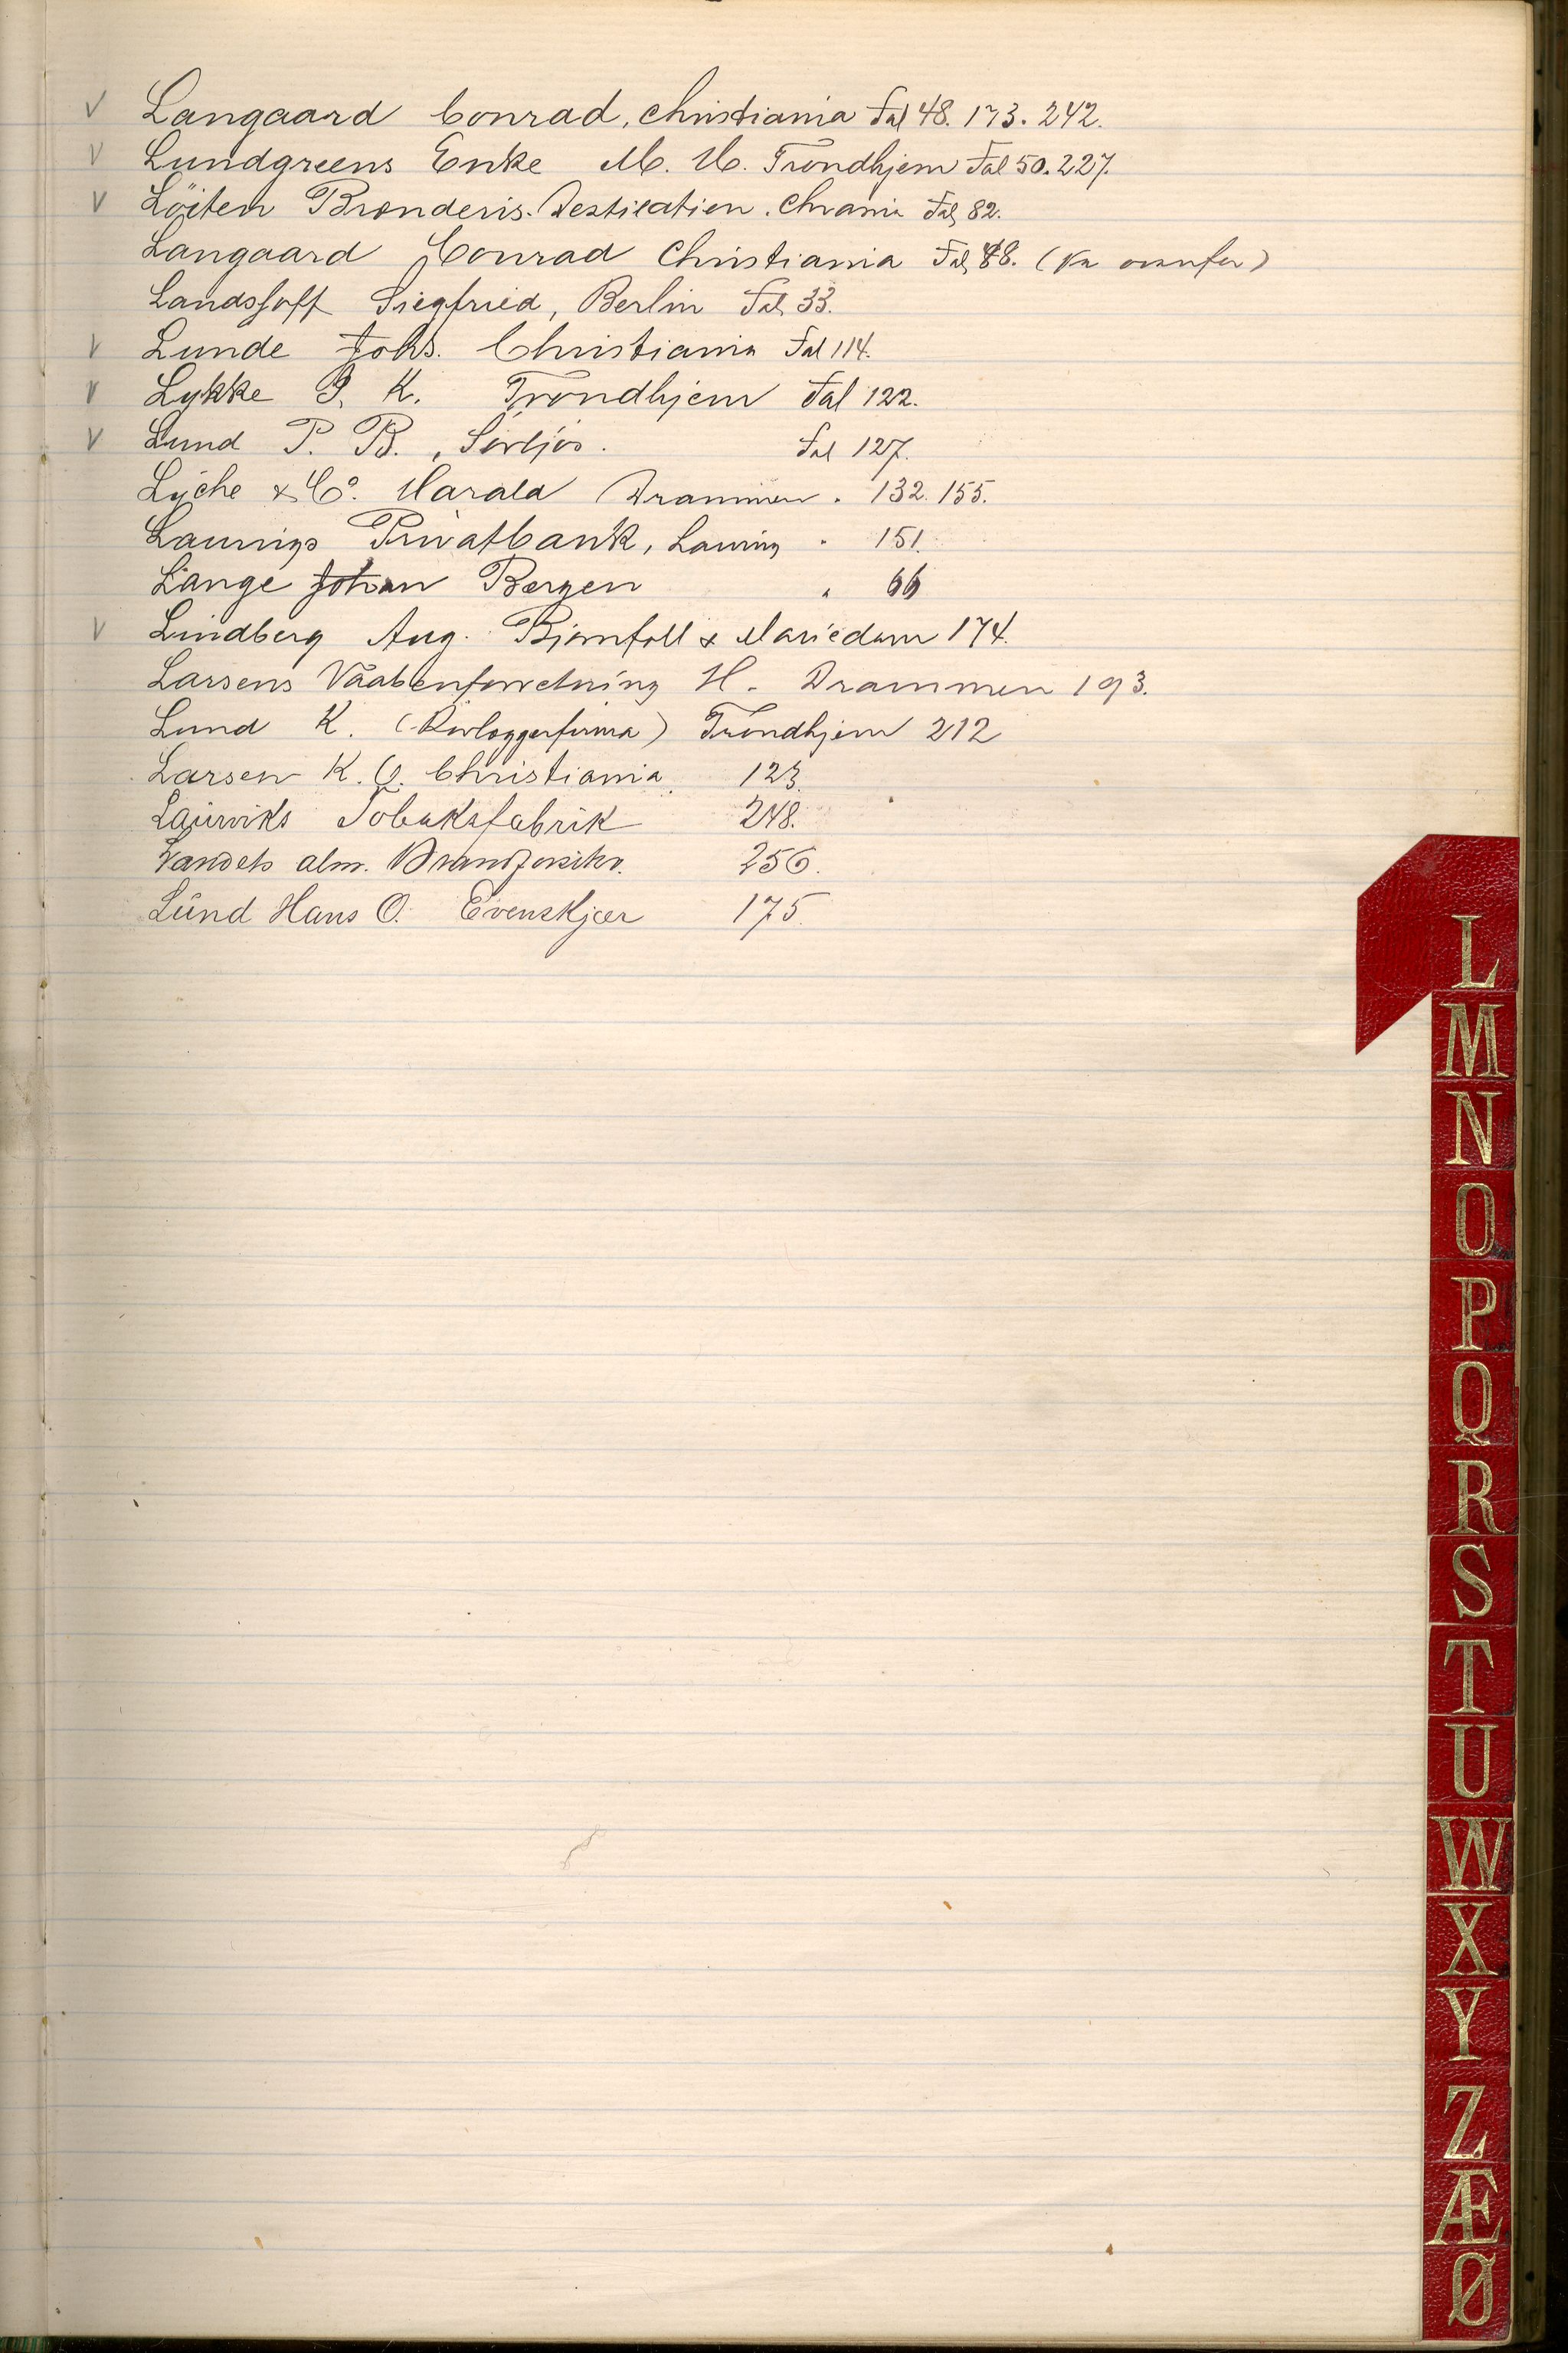 V Langaard Conrad, Christiania Fol 48. 173. 242.
V Lundgreens Enke M. H. Trondhjem Fol 50. 227.
V Löiten Brænderis. Destilation. Chrania Fol 82.
Langaard Conrad Christiania Fol 48. ( ovenfor)
Landshoff Siegfried, Berlin Fol 33.
V Lunde Johs. Christiania Fol 114.
V Lykke I. K. Trondhjem Fol 122.
V Lund P. B., Fol 127.
Lyche & Co. Harald Drammen " 132. 155.
Laurvigs Privatbank, Laurvig " 151.
Lange Johan Bergen " 66
V Lindberg Aug. Bjørnfall & Mariedam 174.
Larsens Vaabenforretning H. Drammen 193.
Lund K. (Rørlæggerfirma) Trondhjem 212
Larsen K. O. Christiania 123.
Laurviks Tobaksfabrik 248.
Landets alm. Brandforsikr. 256.
Lund Hans O. Evenskjær 175.
L
M
N
O
P
Q
R
S
T
U
W
X
Y
Z
Æ
Ø